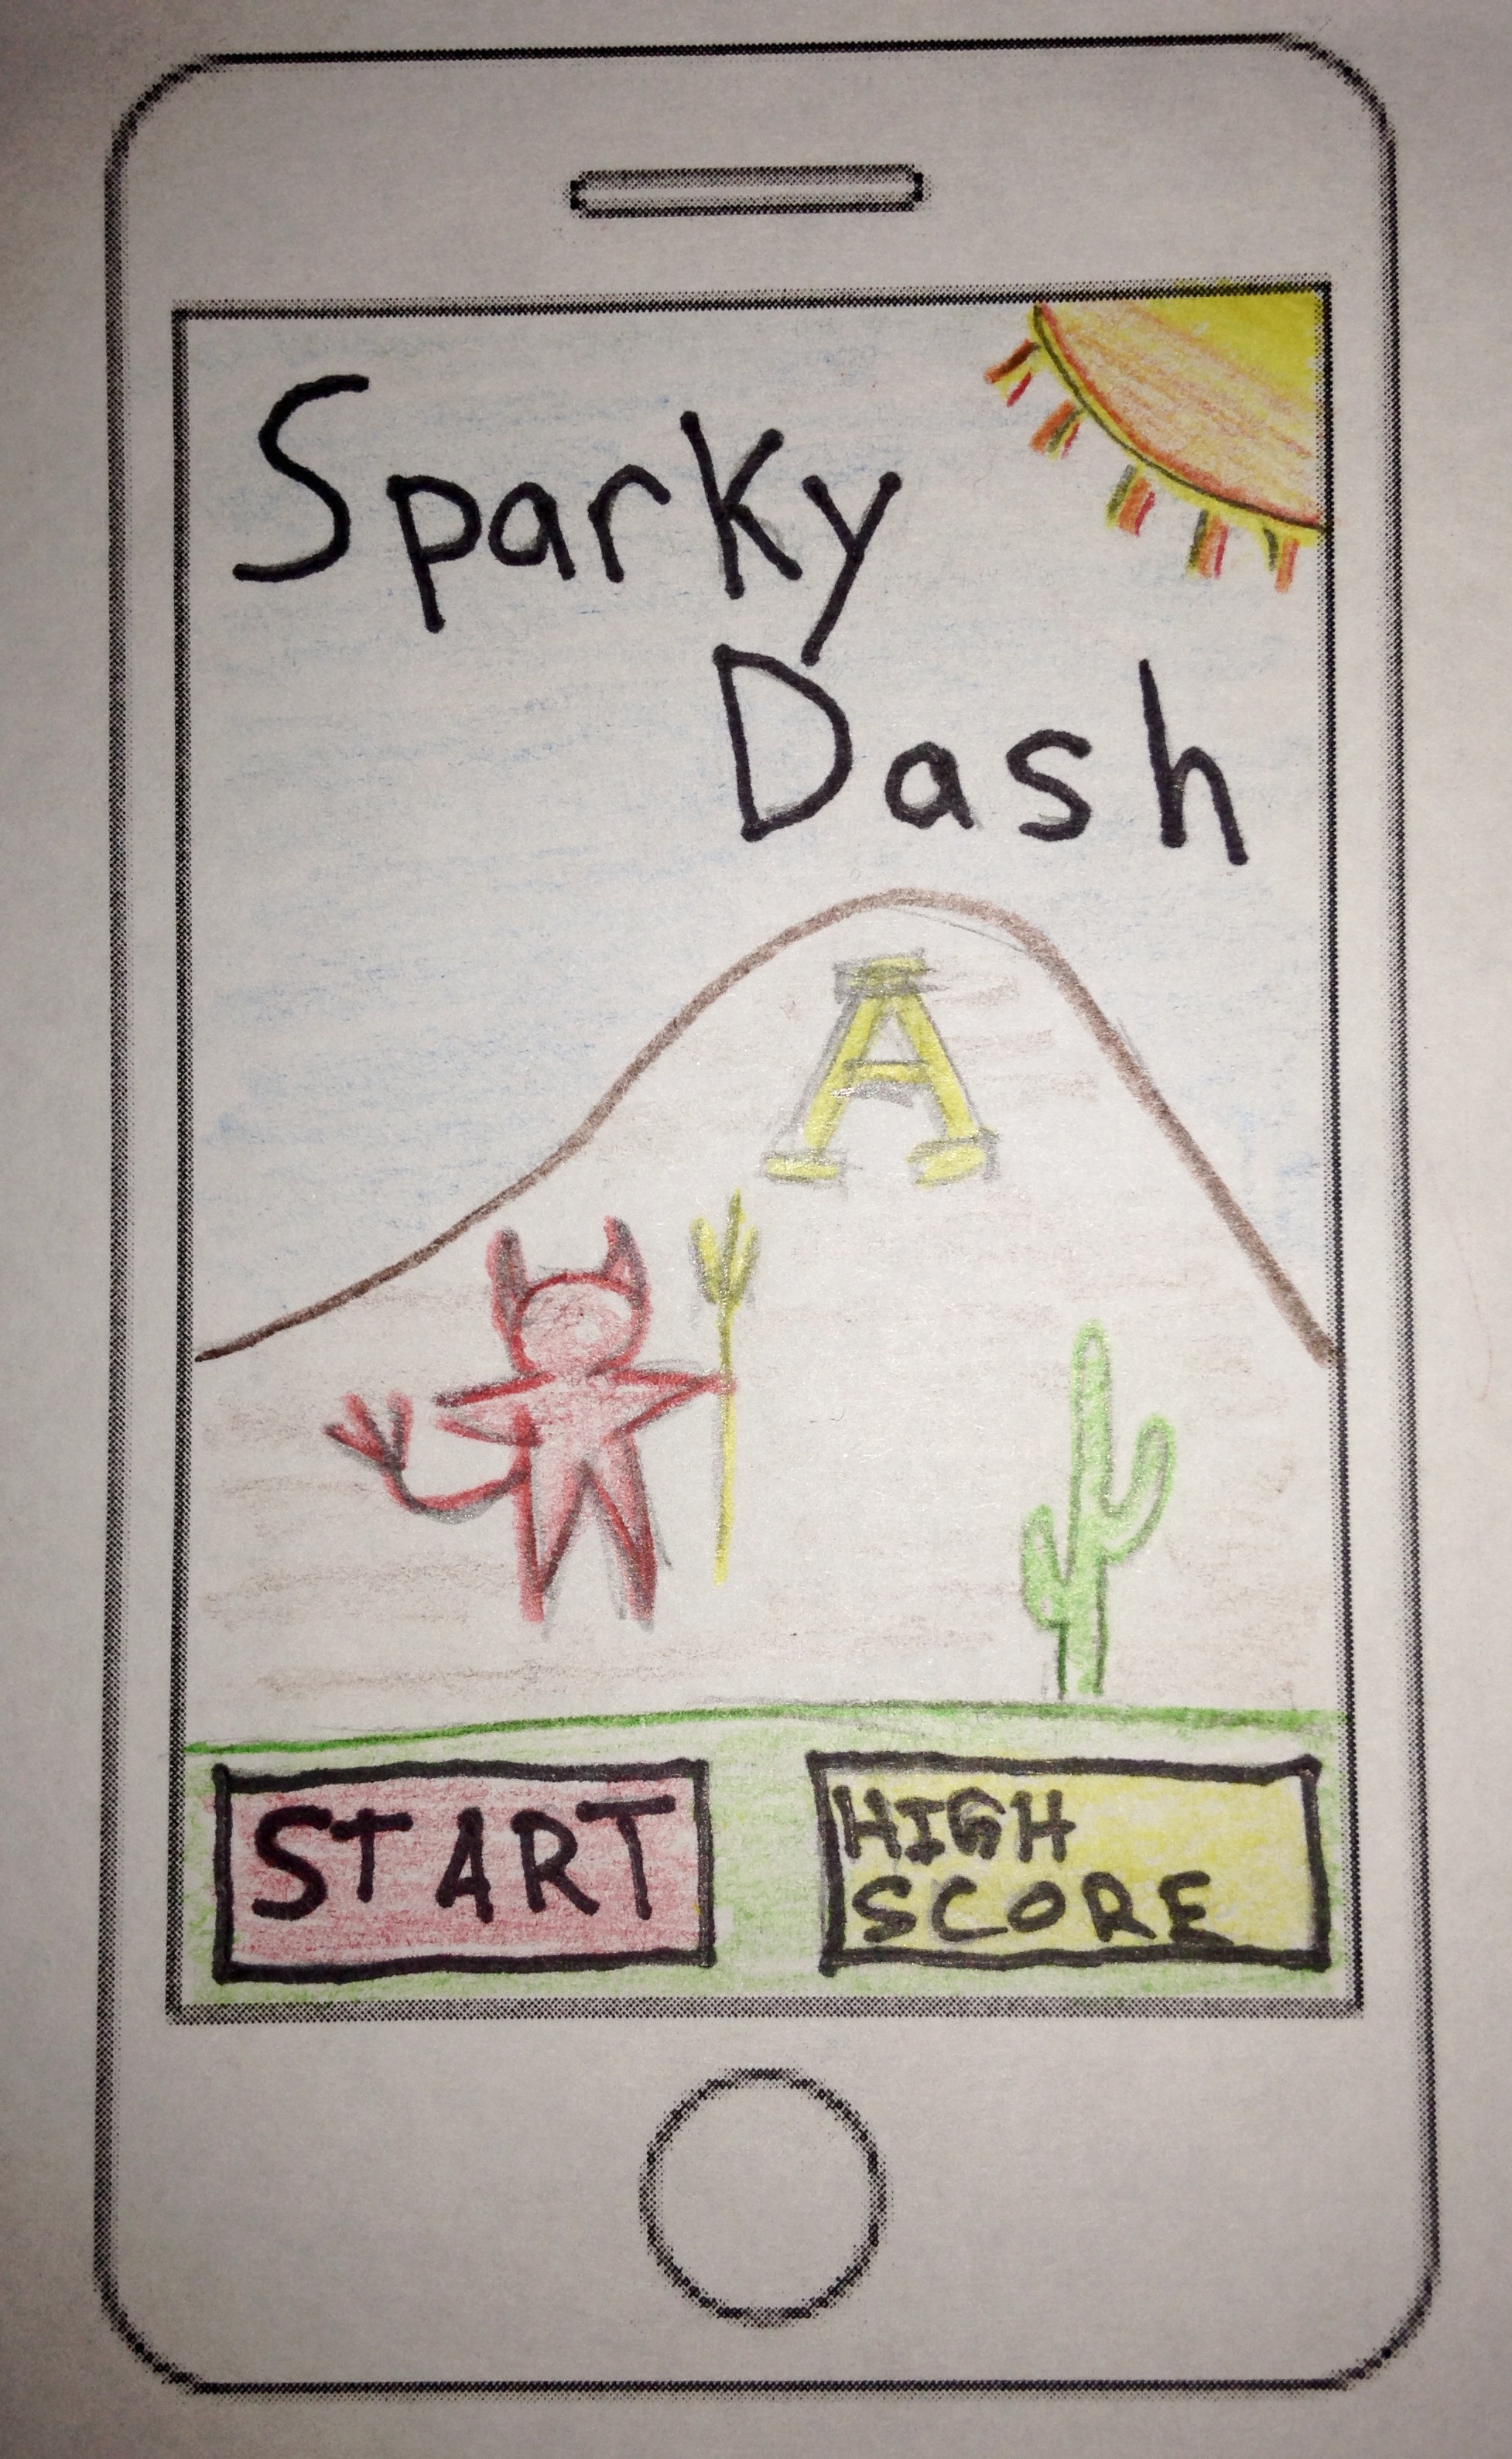 Sparky
Dash
A
START
HIGH
SCORE